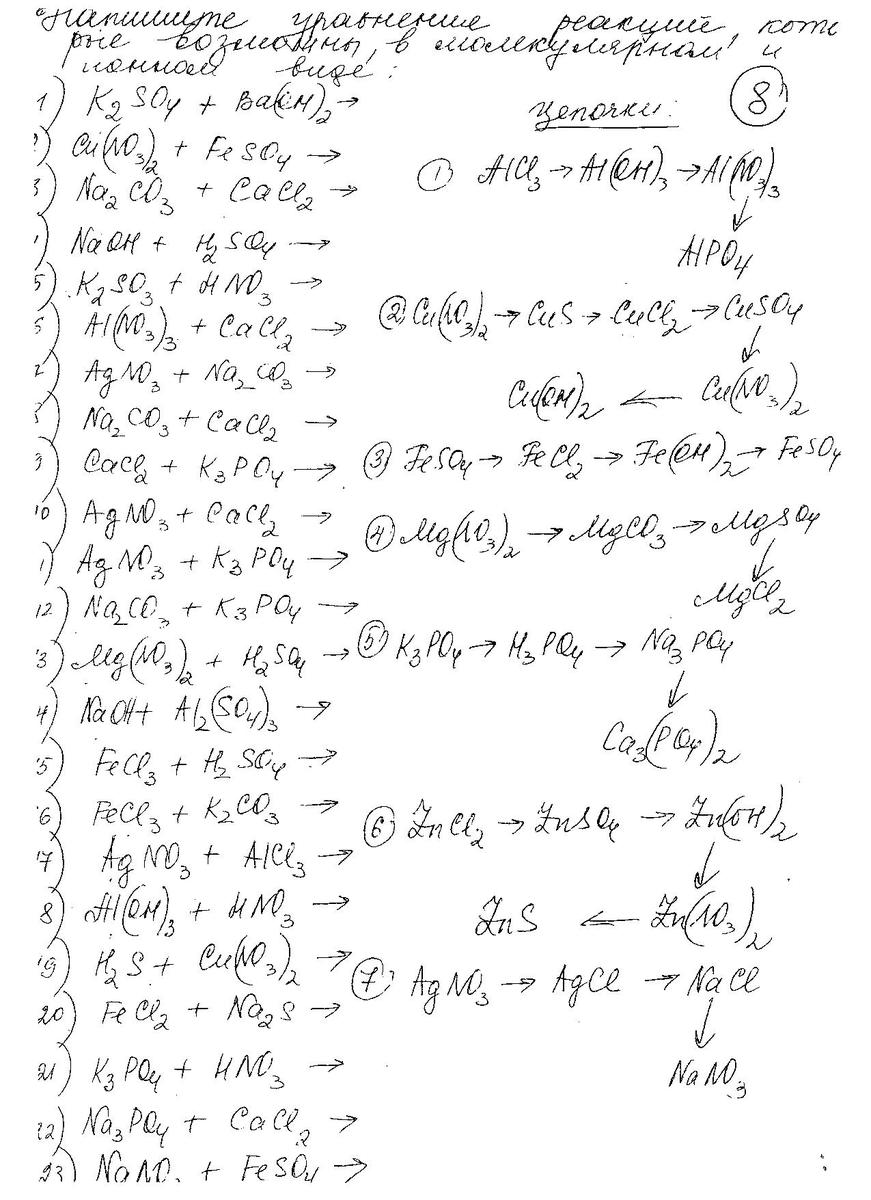 Напишите уравнения реакций, кото
рые возможны, в молекулярном и
ионном виде:
1) K₂SO₄ + Ba(OH)₂ →
2) Cu(NO₃)₂ + FeSO₄ →
3) Na₂CO₃ + CaCl₂ →
4) NaOH + H₂SO₄ →
5) K₂SO₃ + HNO₃ →
6) Al(NO₃)₃ + CaCl₂ →
7) AgNO₃ + Na₂CO₃ →
8) Na₂CO₃ + CaCl₂ →
9) CaCl₂ + K₃PO₄ →
10) AgNO₃ + CaCl₂ →
11) AgNO₃ + K₃PO₄ →
12) Na₂CO₃ + K₃PO₄ →
13) Mg(NO₃)₂ + H₂SO₄ →
14) NaOH + Al₂(SO₄)₃ →
15) FeCl₃ + H₂SO₄ →
16) FeCl₃ + K₂CO₃ →
17) AgNO₃ + AlCl₃ →
18) Al(OH)₃ + HNO₃ →
19) H₂S + Cu(NO₃)₂ →
20) FeCl₂ + Na₂S →
21) K₃PO₄ + HNO₃ →
22) Na₃PO₄ + CaCl₂ →
23) NaNO₃ + FeSO₄ →
Цепочки: 8
① AlCl₃ → Al(OH)₃ → Al(NO₃)₃
↓
AlPO₄
② Cu(NO₃)₂ → CuS → CuCl₂ → CuSO₄
↓
Cu(OH)₂ ← Cu(NO₃)₂
③ FeSO₄ → FeCl₂ → Fe(OH)₂ → FeSO₄
④ Mg(NO₃)₂ → MgCO₃ → MgSO₄
↓
MgCl₂
⑤ K₃PO₄ → H₃PO₄ → Na₃PO₄
↓
Ca₃(PO₄)₂
⑥ ZnCl₂ → ZnSO₄ → Zn(OH)₂
↓
ZnS ← Zn(NO₃)₂
⑦ AgNO₃ → AgCl → NaCl
↓
NaNO₃